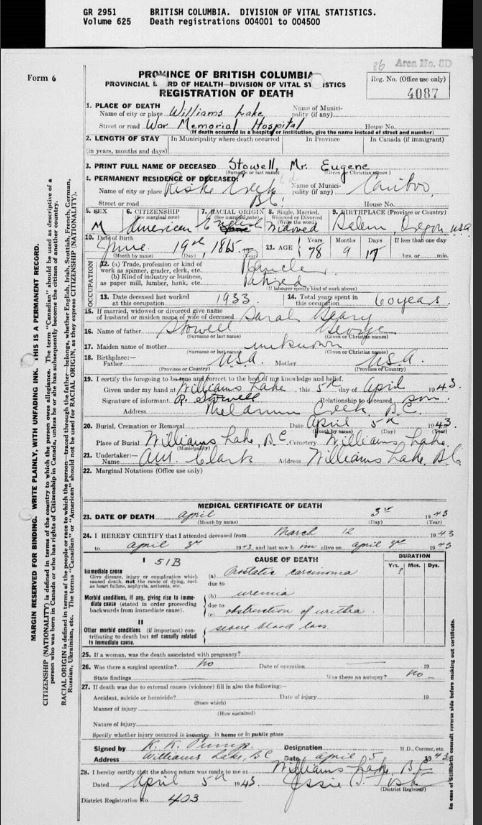 GR 2951 BRITISH COLUMBIA. DIVISION OF VITAL STATISTICS.
Volume 625 Death registrations 004001 to 004500
86 Area No. 8D
Form 6
PROVINCE OF BRITISH COLUMBIA
PROVINCIAL RD OF HEALTH—DIVISION OF VITAL ST ISTICS
REGISTRATION OF DEATH
Reg. No. (Office use only)
4087
1. PLACE OF DEATH
Name of city or place Williams Lake Name of Municipality (if any)
Street or road War Memorial Hospital House No.
(If death occurred in a hospital or institution, give the name instead of street and number)
2. LENGTH OF STAY In Municipality where death occurred In Province In Canada (if immigrant)
(in years, months and days)
3. PRINT FULL NAME OF DECEASED Stowell, Mr. Eugene
(Surname or last name) (Given or Christian names)
4. PERMANENT RESIDENCE OF DECEASED:
Name of city or place Riske Creek Name of Municipality (if any) Cariboo
Street or road B.C. House No.
5. SEX 6. CITIZENSHIP 7. RACIAL ORIGIN 8. Single, Married, Widowed or Divorced 9. BIRTHPLACE (Province or Country)
M American English Married Salem, Oregon USA
10. Date of Birth June 19th 1865 11. AGE Years 78 Months 9 Days 17 If less than one day
(Month by name) hrs. or min.
OCCUPATION
12. (a) Trade, profession or kind of work as spinner, grader, clerk, etc. Rancher
(b) Kind of industry or business, as paper mill, lumber, bank, etc. Retired
13. Date deceased last worked at this occupation 1933 14. Total years spent in this occupation 60 years
15. If married, widowed or divorced give name of husband or maiden name of wife of deceased Sarah Geary
16. Name of father Stowell George
(Surname or last name) (Given or Christian names)
17. Maiden name of mother unknown
(Surname or last name) (Given or Christian names)
18. Birthplace:— Father USA. Mother USA.
(Province or Country) (Province of Country)
19. I certify the foregoing to be true and correct to the best of my knowledge and belief.
Given under my hand at Williams Lake, this 5th day of April 1943.
Signature of informant A. Stowell Relationship to deceased Son.
Address Meldrum Creek, B.C.
20. Burial, Cremation or Removal Date April 5th 1943.
(Month by name) (Day) (Year)
Place of Burial Williams Lake, B.C. Cemetery Williams Lake.
(Municipality)
21. Undertaker:— Name A.M. Clark Address Williams Lake, B.C.
22. Marginal Notations (Office use only)
MEDICAL CERTIFICATE OF DEATH
23. DATE OF DEATH April 3rd 1943
(Month by name) (Day) (Year)
24. I HEREBY CERTIFY that I attended deceased from March 12 1943
to april 3rd 1943 and last saw him alive on april 3rd 1943
I 51B CAUSE OF DEATH DURATION
Yrs. Mos. Dys.
Immediate cause
Give disease, injury or complication which caused death, not the mode of dying, such as heart failure, asphyxia, asthenia, etc.
(a) Prostatic carcinoma ?
due to
Morbid conditions, if any, giving rise to immediate cause (stated in order proceeding backwards from immediate cause).
(b) uremia
due to
(c) obstruction of urethra
II
Other morbid conditions (if important) contributing to death but not causally related to immediate cause.
severe blood loss
25. If a woman, was the death associated with pregnancy?
26. Was there a surgical operation? no Date of operation 19
State findings Was there an autopsy? no
27. If death was due to external causes (violence) fill in also the following:—
Accident, suicide or homicide? Date of injury 19
(State which)
Manner of injury
(How sustained)
Nature of injury
Specify whether injury occurred in industry, in home or in public place
Signed by K. K. Pump Designation M.D., Coroner, etc.
Address Williams Lake, BC Date april 5, 1943
28. I hereby certify that the above return was made to me at Williams Lake, B.C.
Dated April 5th 1943. Jessie
(District Registrar)
District Registration No. 403
MARGIN RESERVED FOR BINDING. WRITE PLAINLY, WITH UNFADING INK. THIS IS A PERMANENT RECORD.